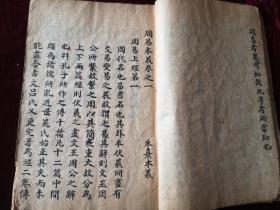 周易本義卷之一
朱熹本義
周易上經第一
周代名也易書名也其卦本伏羲所畫有
交易變易之義故謂之易其辭則文王周
公所繫故繫之周以其簡袠重大故分為
上下兩篇經則伏羲之畫文王周公之辭
也并孔子所作之傳十篇凡十二篇中間
頗為諸儒所亂近世晁氏始正其失而未
能盡合古文呂氏又更定著為經二卷傳